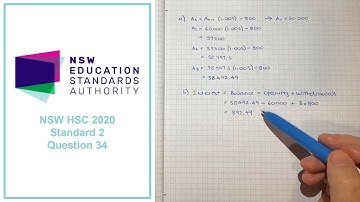 NSW
EDUCATION
STANDARDS
AUTHORITY
NSW HSC 2020
Standard 2
Question 34
a) Aₙ = Aₙ₋₁ (1.005) - 800 → A₀ = 60000
A₁ = 60000 (1.005) - 800
= 59500
A₂ = 59500 (1.005) - 800
= 58997.5
A₃ = 58997.5 (1.005) - 800
= 58492.49
b) Interest = Balance - Opening + Withdrawals
= 58492.49 - 60000 + 3 × 800
= 892.49